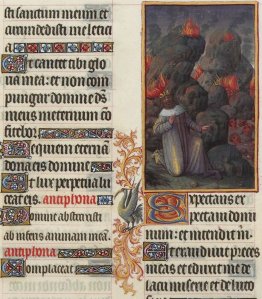 sti saccum meum et
circundedisti me leticia
a
Et cantet tibi glo
ria mea: et non com
pungar domine ds
meus in eternum con
fitebor:
Requiem eternam
dona eis domine
Et lux perpetua lu
ceat eis. antiphona
Domine abstraxisti
ab inferis animam meam.
antiphona
Complaceat
Expectans ex
pectavi domi
num: et intendit m
Et exaudivit preces
meas et eduxit me de
lacu miserie et de luto